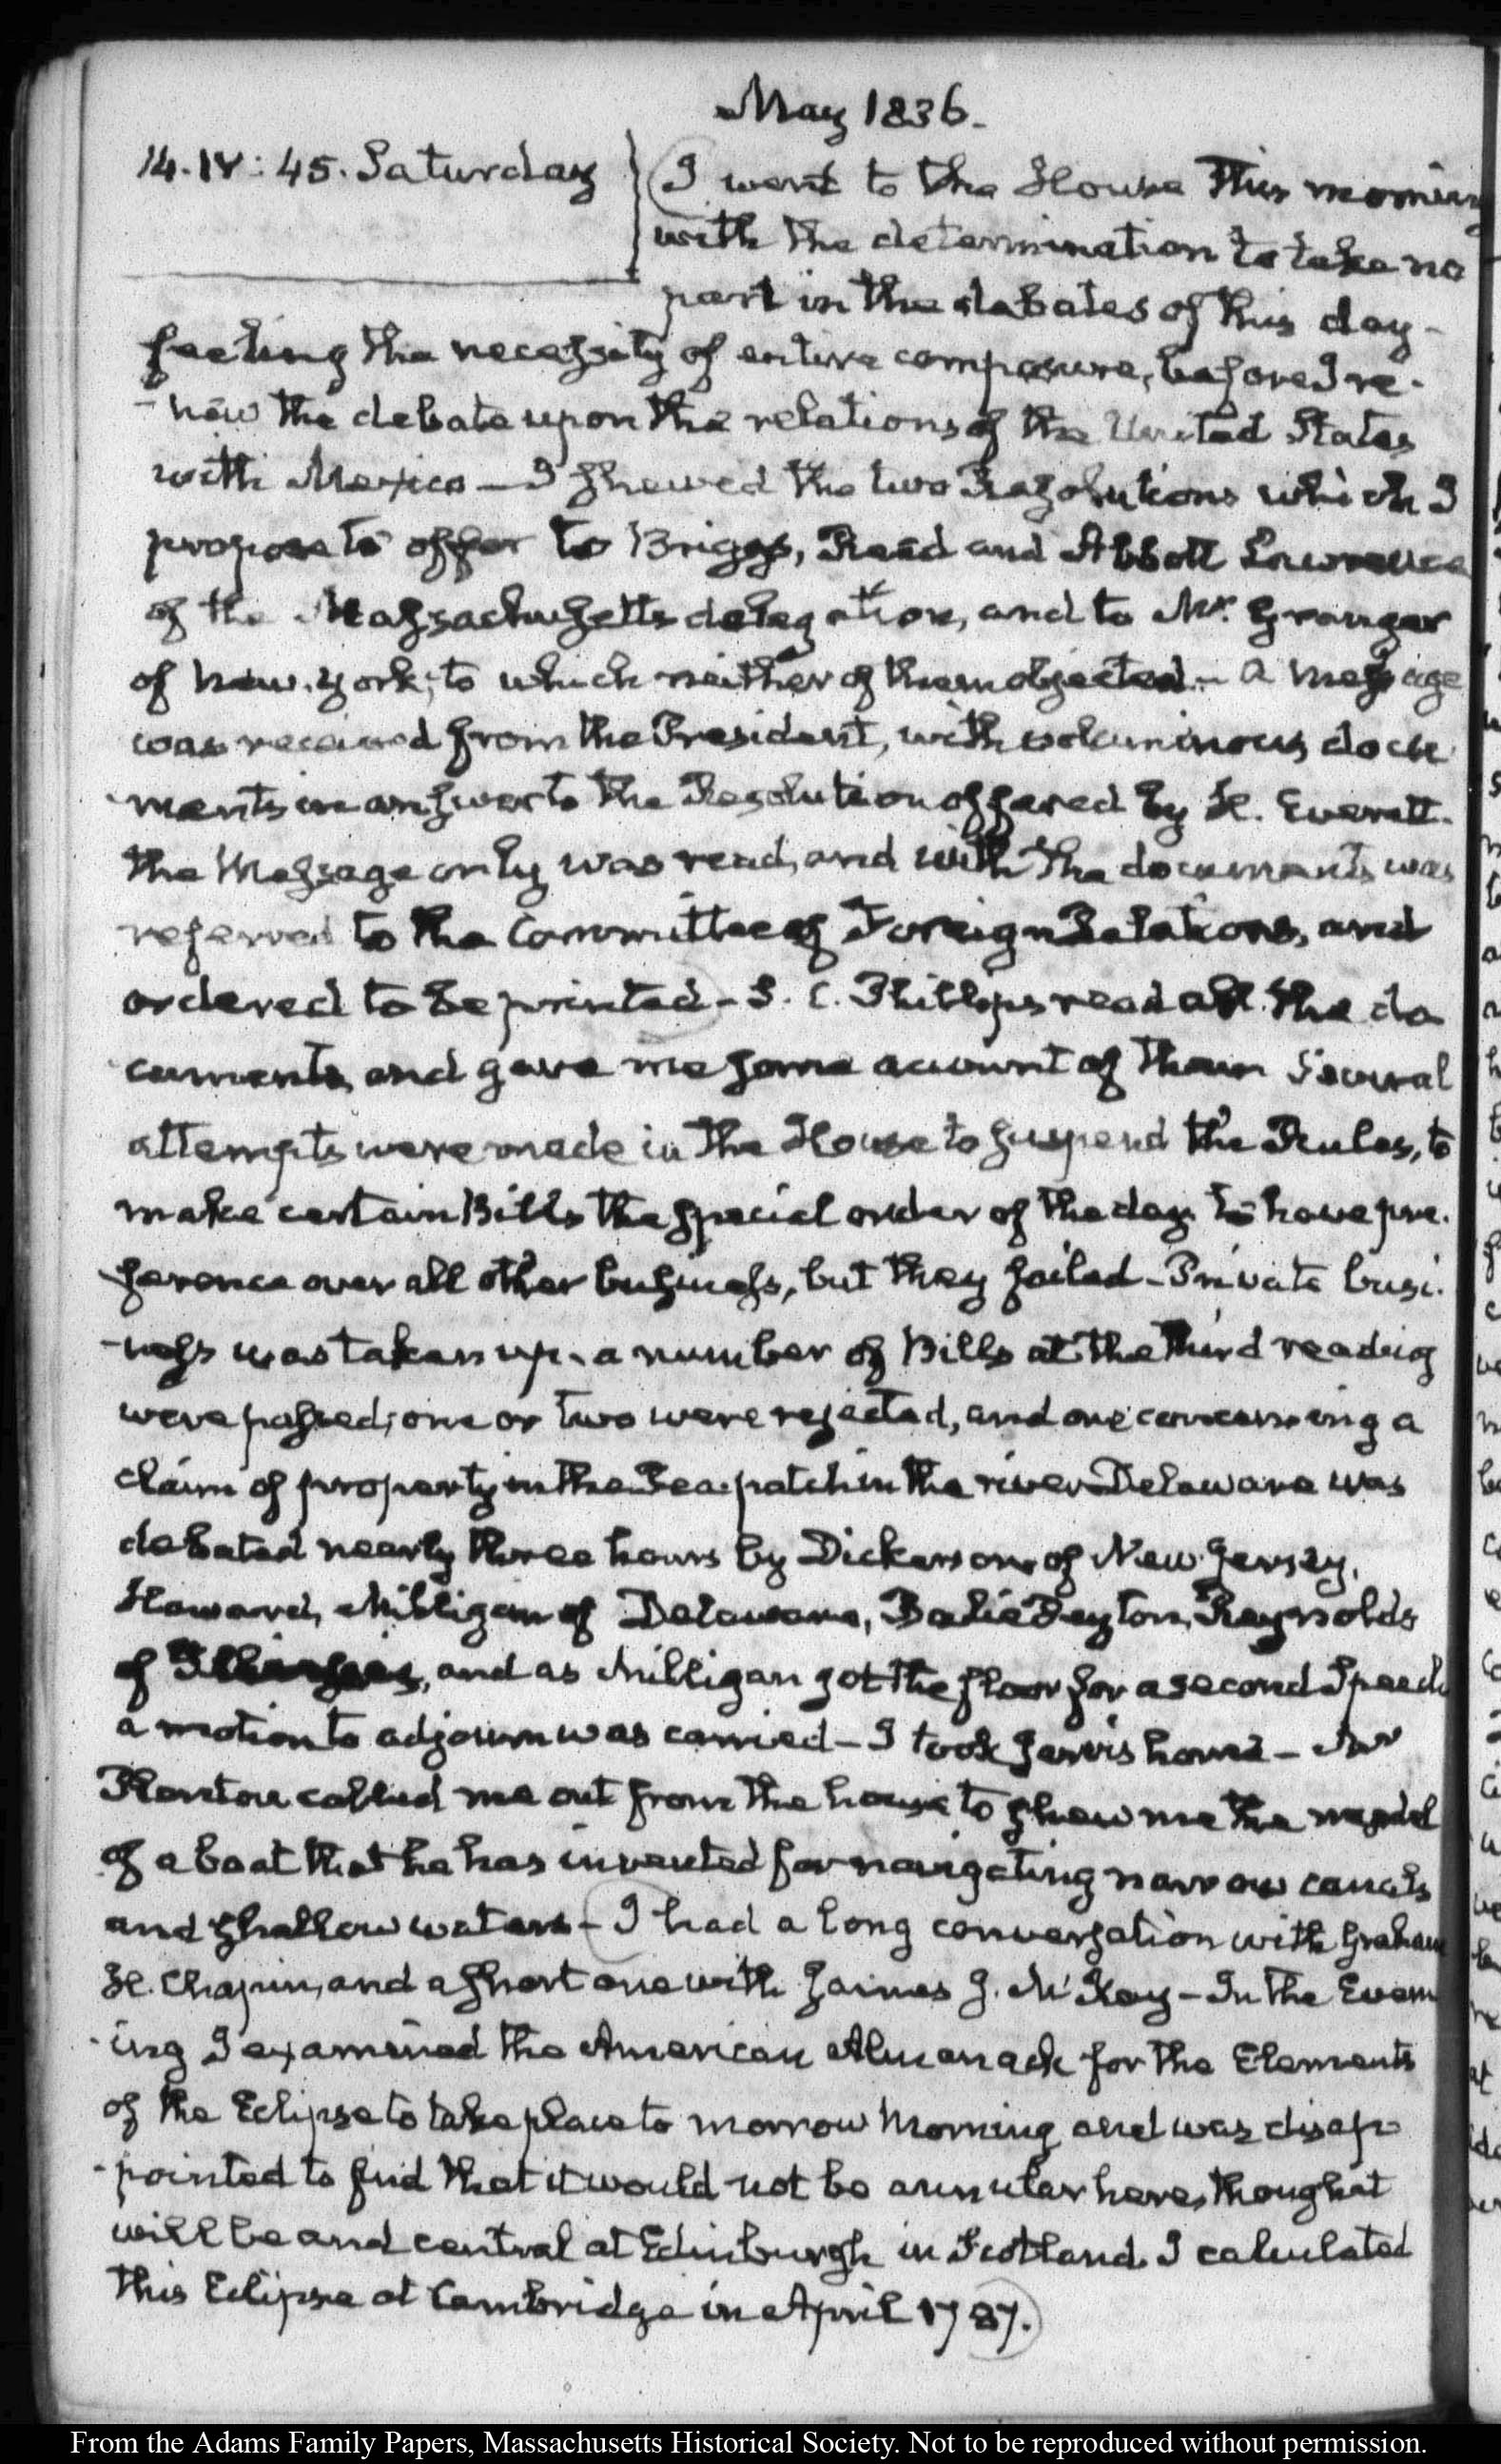 May 1836.
14. IV: 45. Saturday
I went to the House this morning
with the determination to take no
part in the debates of this day –
feeling the necessity of entire composure, before I re-
-new the debate upon the relations of the United States
with Mexico — I shewed the two Resolutions which I
propose to offer to Briggs, Reed and Abbott Lawrence
of the Massachusetts delegation, and to Mr. Granger
of New-York, to which neither of them objected – a Message
was received from the President, with voluminous docu
-ments in answer to the Resolution offered by H. Everett.
The Message only was read, and with the documents was
referred to the Committee of Foreign Relations, and
ordered to be printed – S. C. Phillips read all the do
cuments, and gave me some account of them Several
attempts were made in the House to suspend the Rules, to
make certain Bills the special order of the day to have pre-
-ference over all other business, but they failed – Private busi-
-ness was taken up, a number of Bills at the third reading
were passed; one or two were rejected, and one concerning a
claim of property in the Pea-patch in the river Delaware was
debated nearly three hours by Dickerson of New Jersey,
Howard, Milligan of Delaware, Balie Peyton, Reynolds
of Illinois, and as Milligan got the floor for a second Speech
a motion to adjourn was carried – I took Jarvis home – Mr
called me out from the house to shew me the model
of a boat that he has invented for navigating narrow canals
and shallow waters – I had a long conversation with Graham
H. Chapin, and a short one with James J. McKay – In the Even
-ing I examined the American Almanack for the Elements
of the Eclipse to take place to morrow Morning and was disap
-pointed to find that it would not be annular here, though it
will be and central at Edinburgh in Scotland. I calculated
this Eclipse at Cambridge in April 1787.
From the Adams Family Papers, Massachusetts Historical Society. Not to be reproduced without permission.